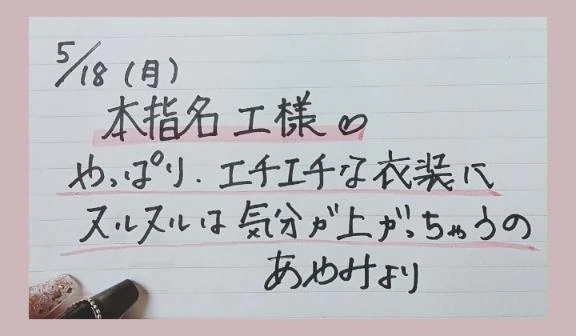 5/18(月)
本指名 エ様♡
やっぱり、エチエチな衣装に
ヌルヌルは気分が上がっちゃうの
あやみより